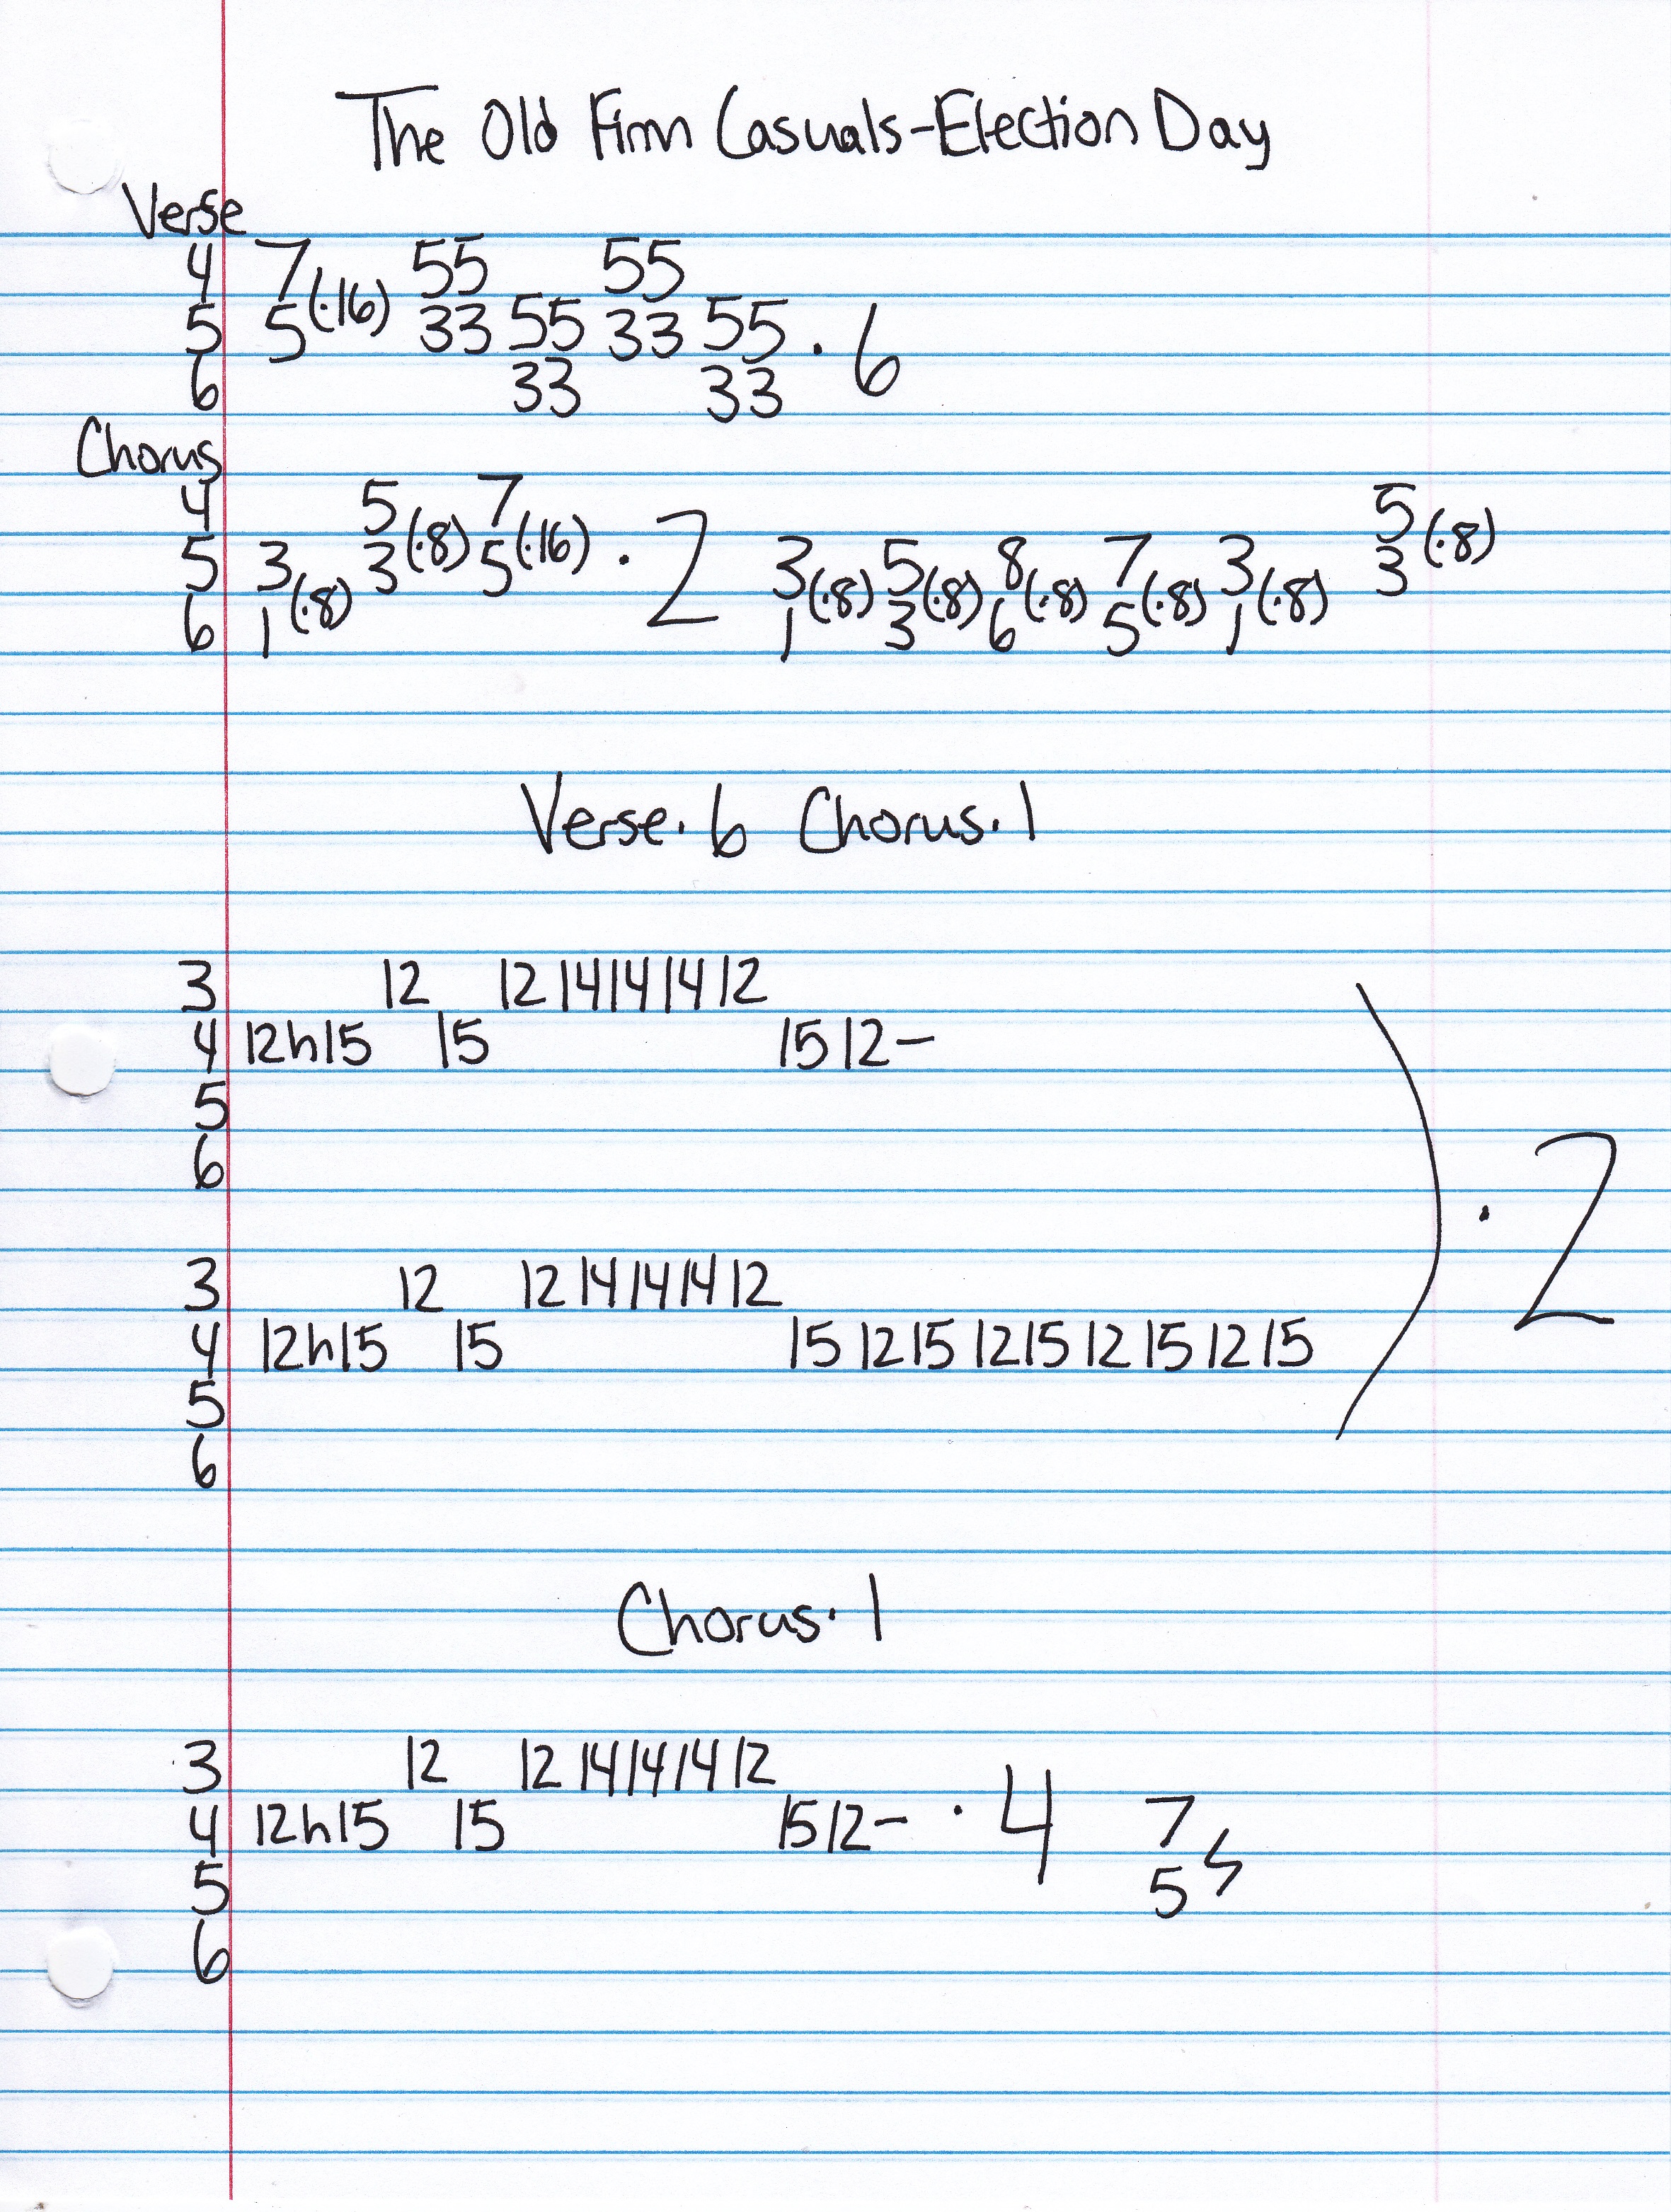 The Old Firm Casuals-Election Day
Verse
4 7 55 55
5 5 (·16) 33 55 33 55 · 6
6 33 33
Chorus
4 5 7 5
5 3 3 (·8) 5 (·16) · 2 3 5 8 7 3 3 (·8)
6 1 (·8) 1 (·8) 3 (·8) 6 (·8) 5 (·8) 1 (·8)
Verse·6 Chorus·1
3 12 12 14 14 14 12
4 12h15 15 15 12-
5
6
3 12 12 14 14 14 12
4 12h15 15 15 12 15 12 15 12 15 12 15
5
6
) · 2
Chorus·1
3 12 12 14 14 14 12
4 12h15 15 15 12- · 4 7
5 5
6